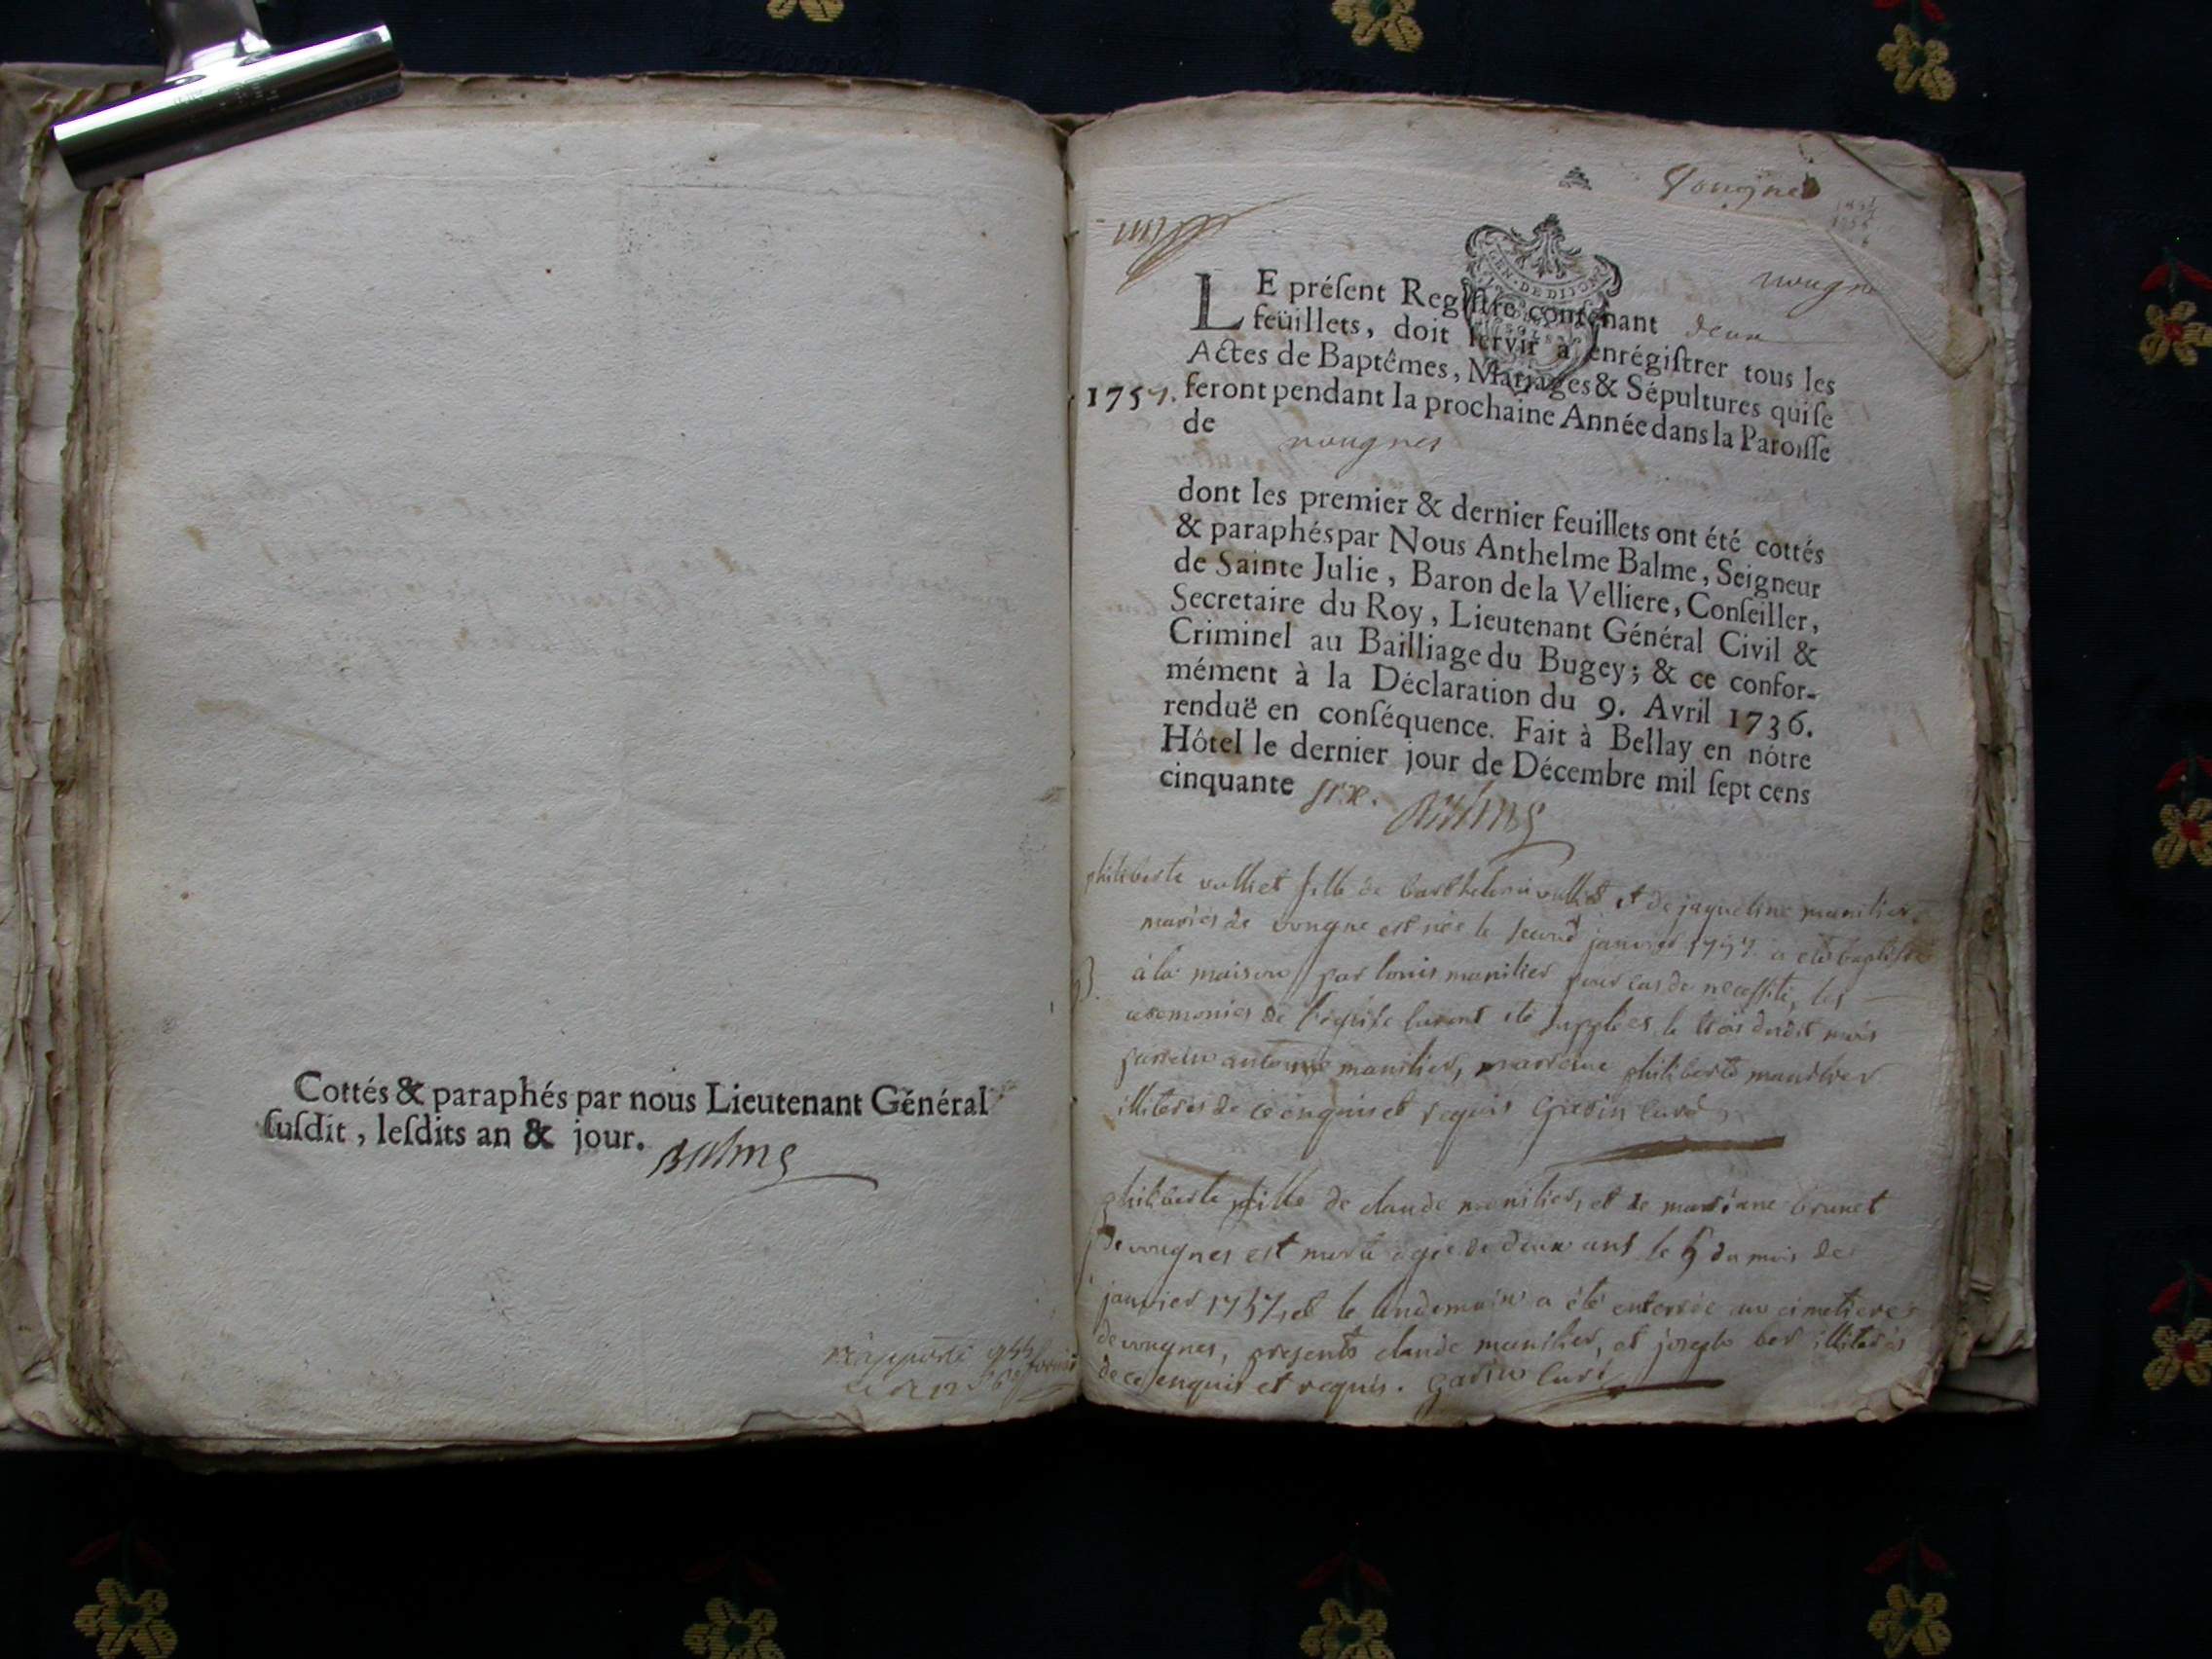 Cottés & paraphés par nous Lieutenant Général
ſuſdit, leſdits an & jour.
Balme
Vougnes
vougne
GEN. DE DIJON
LE préſent Regiſtre contenant deux
feüillets, doit ſervir à enrégiſtrer tous les
Actes de Baptêmes, Mariages & Sépultures qui ſe
1757. feront pendant la prochaine Année dans la Paroiſſe
de vougnes
dont les premier & dernier feuillets ont été cottés
& paraphés par Nous Anthelme Balme, Seigneur
de Sainte Julie, Baron de la Velliere, Conſeiller,
Secretaire du Roy, Lieutenant Général Civil &
Criminel au Bailliage du Bugey; & ce confor-
mément à la Déclaration du 9. Avril 1736.
renduë en conſéquence. Fait à Bellay en nôtre
Hôtel le dernier jour de Décembre mil ſept cens
cinquante ſix. Balme
philiberte vulliet fille de barthelemi vulliet et de jaqueline manilier
mariés de vougne est née le second janvier 1757. a eté baptisée
B. à la maison par louis manilier pour cas de necessité, les
ceremonies de l'eglise luy ont eté supplées le trois dudit mois
parrein antoine manilier, marreine philiberte manilier
illiterés de ce enquis et requis Garin Curé
philiberte fille de claude manilier, et de mariane brunet
de vougnes est morte agée de deux ans le 5 du mois de
janvier 1757, et le lendemain a été enterrée au cimetiere
de vougnes, presents claude manilier, et joseph ber illiterés
de ce enquis et requis. Garin Curé